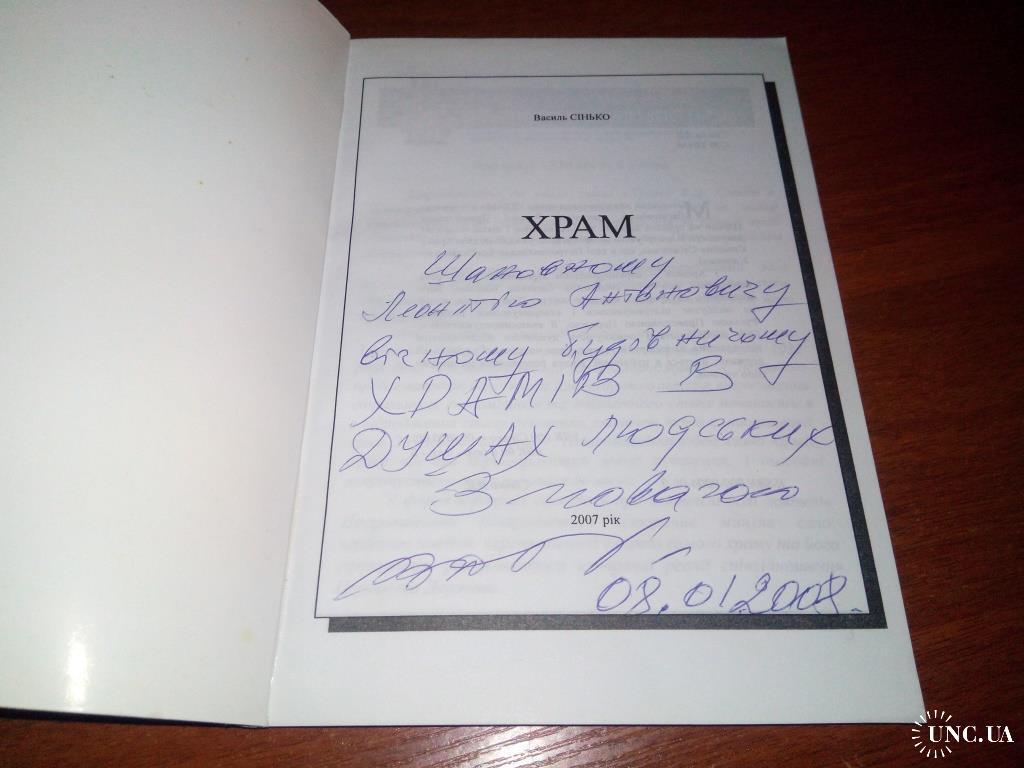 Василь СІНЬКО
ХРАМ
Шановному
Леонтію Антоновичу
вічному будівничому
ХРАМІВ В
ДУШАХ людських
З повагою
2007 рік
08.01.2008.
UNC.UA